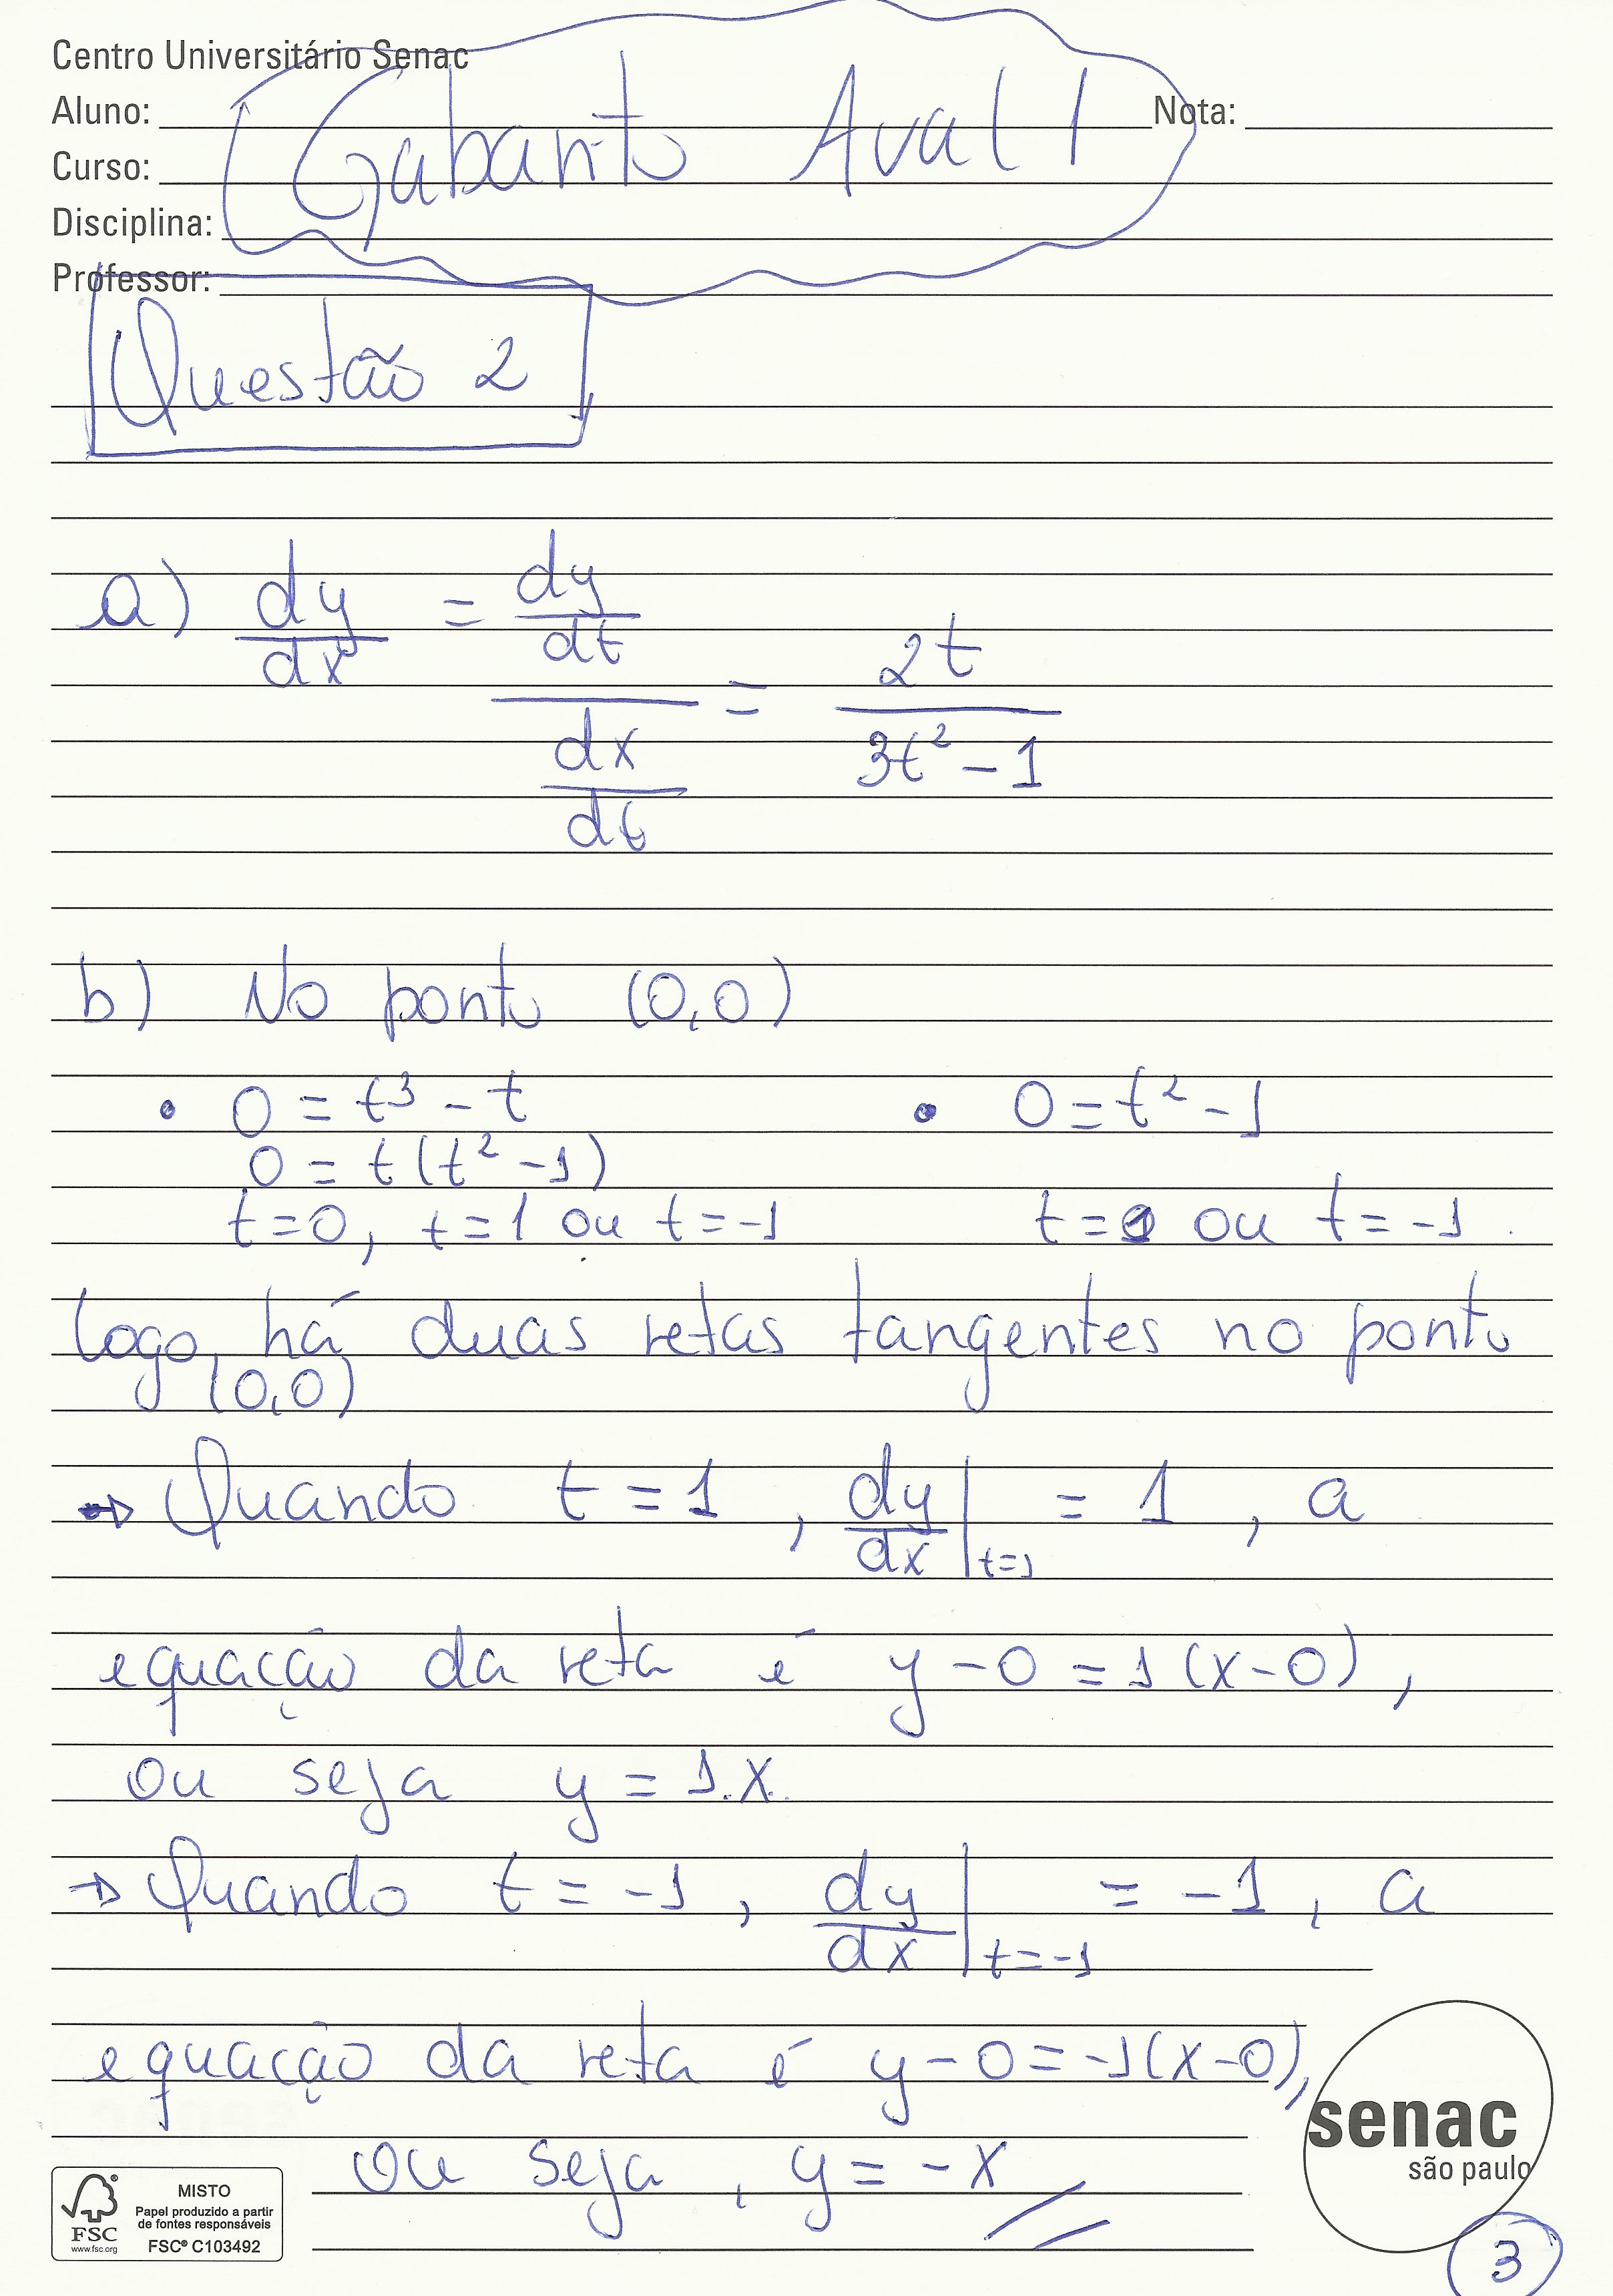 Centro Universitário Senac
Aluno: Nota:
Curso:
Disciplina:
Professor:
Gabarito Aval 1
Questão 2
a) dy/dx = (dy/dt)/(dx/dt) = 2t/(3t² - 1)
b) No ponto (0,0)
• 0 = t³ - t • 0 = t² - 1
0 = t(t² - 1)
t = 0, t = 1 ou t = -1 t = 1 ou t = -1.
logo, há duas retas tangentes no ponto
(0,0)
→ Quando t = 1, dy/dx |t=1 = 1, a
equação da reta é y - 0 = 1(x - 0),
ou seja y = 1.x.
→ Quando t = -1, dy/dx |t=-1 = -1, a
equação da reta é y - 0 = -1(x - 0),
ou seja, y = -x
senac
são paulo
FSC
www.fsc.org
MISTO
Papel produzido a partir
de fontes responsáveis
FSC® C103492
3